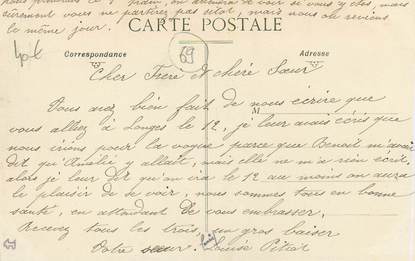 pour prendre le train, on attendra de voir si vous y êtes, mais
sûrement vous ne partirez pas sitot, mais nous on reviens
le même jour.
CARTE POSTALE
69
Correspondance
Adresse
Cher Frère et chère Sœur
Vous avez bien fait de nous écrire que
M
vous alliez à Longes le 12, je leur avais écris que
nous irions pour la vogue parce que Benoit m'avait
dit qu'Amélie y allait, mais elle ne m'a rien écrit.
alors je leur dit qu'on ira le 12 au moins on aura
le plaisir de se voir, nous sommes tous en bonne
santé, en attendant de vous embrasser.
Recevez tous les trois, un gros baiser
Votre sœur Louise Pitiot